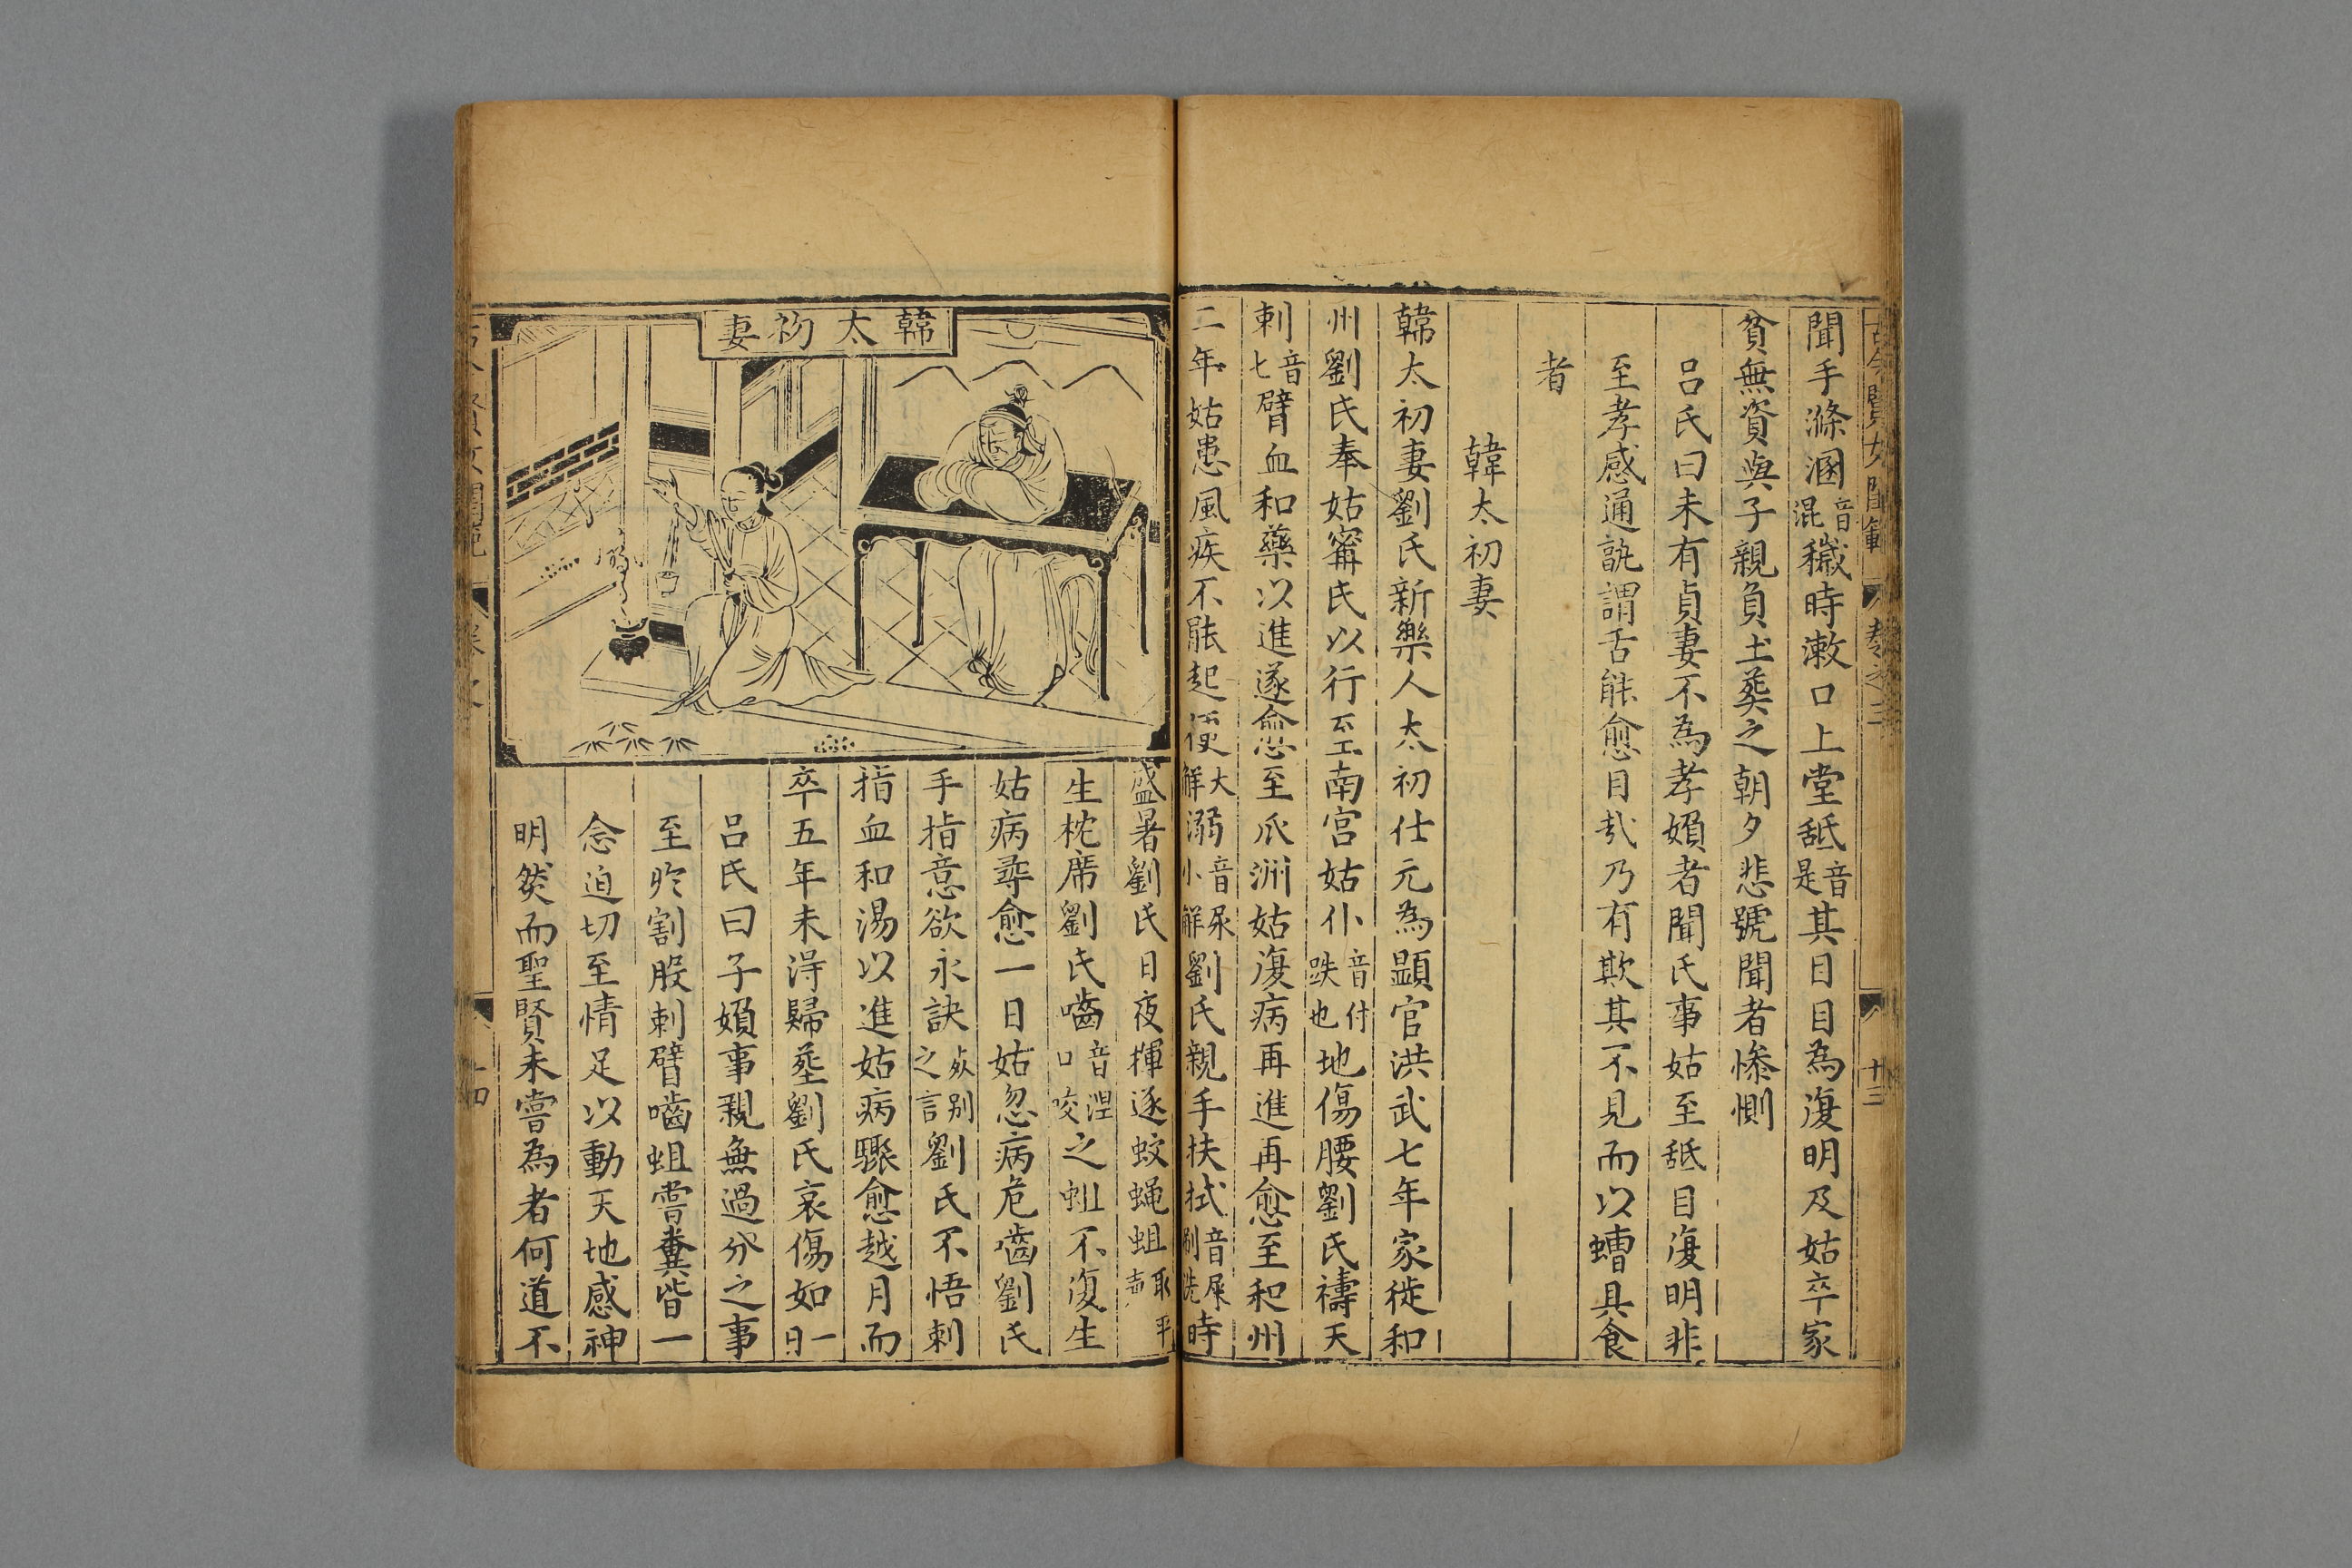 古今閨女閨範 卷之三 十三
聞手滌溷音混穢時漱口上堂舐音是其目目為復明及姑卒家
貧無資與子親負土葬之朝夕悲號聞者慘惻
呂氏曰未有貞妻不為孝婦者聞氏事姑至舐目復明非
至孝感通訛謂舌能愈目哉乃有欺其不見而以螬具食
者
韓太初妻
韓太初妻劉氏新樂人太初仕元為顯官洪武七年家徙和
州劉氏奉姑甯氏以行至南宮姑仆音付跌也地傷腰劉氏禱天
刺音七臂血和藥以進遂愈至瓜洲姑復病再進再愈至和州
二年姑患風疾不能起便大解溺音尿小解劉氏親手扶拭音屎刷洗時
韓太初妻
盛暑劉氏日夜揮逐蚊蠅蛆取平声
生枕席劉氏嚙音涅口咬之蛆不復生
姑病尋愈一日姑忽病危嚙劉氏
手指意欲永訣死别之言劉氏不悟刺
指血和湯以進姑病驟愈越月而
卒五年未得歸塟劉氏哀傷如一日
呂氏曰子婦事親無過分之事
至於割股刺臂嚙蛆嘗糞皆一
念迫切至情足以動天地感神
明然而聖賢未嘗為者何道不
十四